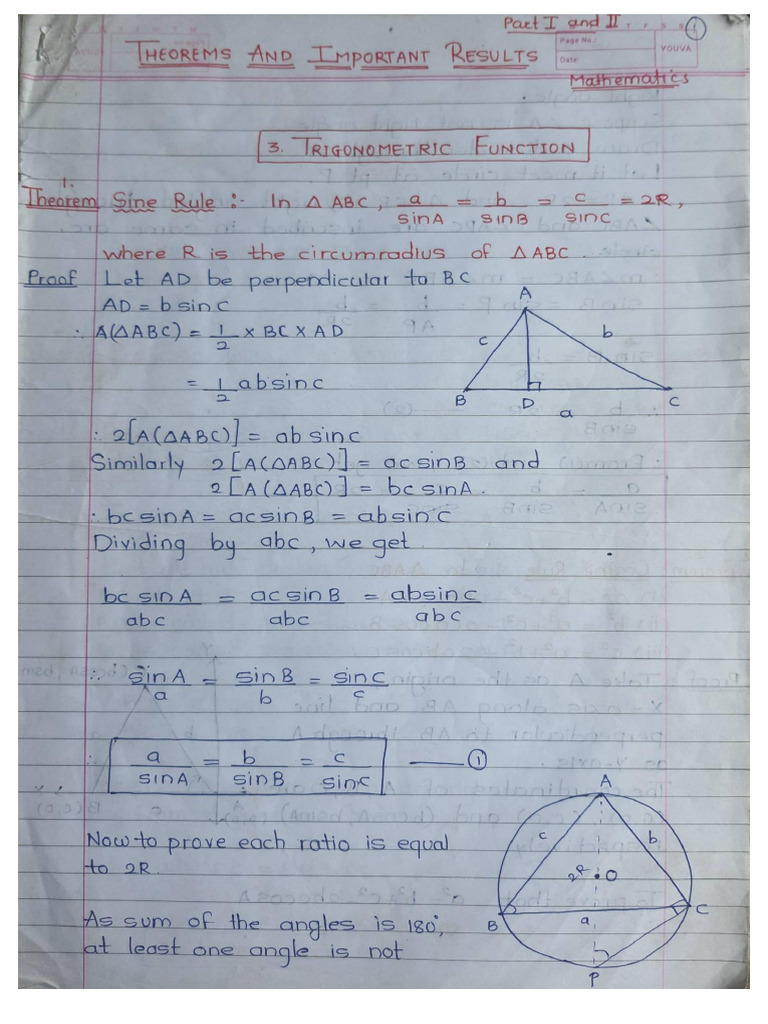 Part I and II
1
THEOREMS AND IMPORTANT RESULTS
Page No.:
Date:
YOUVA
Mathematics
3. TRIGONOMETRIC FUNCTION
1.
Theorem Sine Rule :- In △ ABC, a/sinA = b/sinB = c/sinC = 2R,
where R is the circumradius of △ABC.
Proof Let AD be perpendicular to BC
AD = b sinc
∴ A(△ABC) = 1/2 × BC × AD
= 1/2 absinc
A
c
b
B
D
C
a
∴ 2[A(△ABC)] = ab sinc
Similarly 2[A(△ABC)] = ac sinB and
2[A(△ABC)] = bc sinA.
∴ bc sinA = ac sinB = absinc
Dividing by abc, we get
bc sinA/abc = ac sinB/abc = absinc/abc
∴ sinA/a = sinB/b = sinc/c
∴ a/sinA = b/sinB = c/sinc —— 1
Now to prove each ratio is equal
to 2R.
As sum of the angles is 180°,
at least one angle is not
A
c
b
2R
O
B
a
C
P